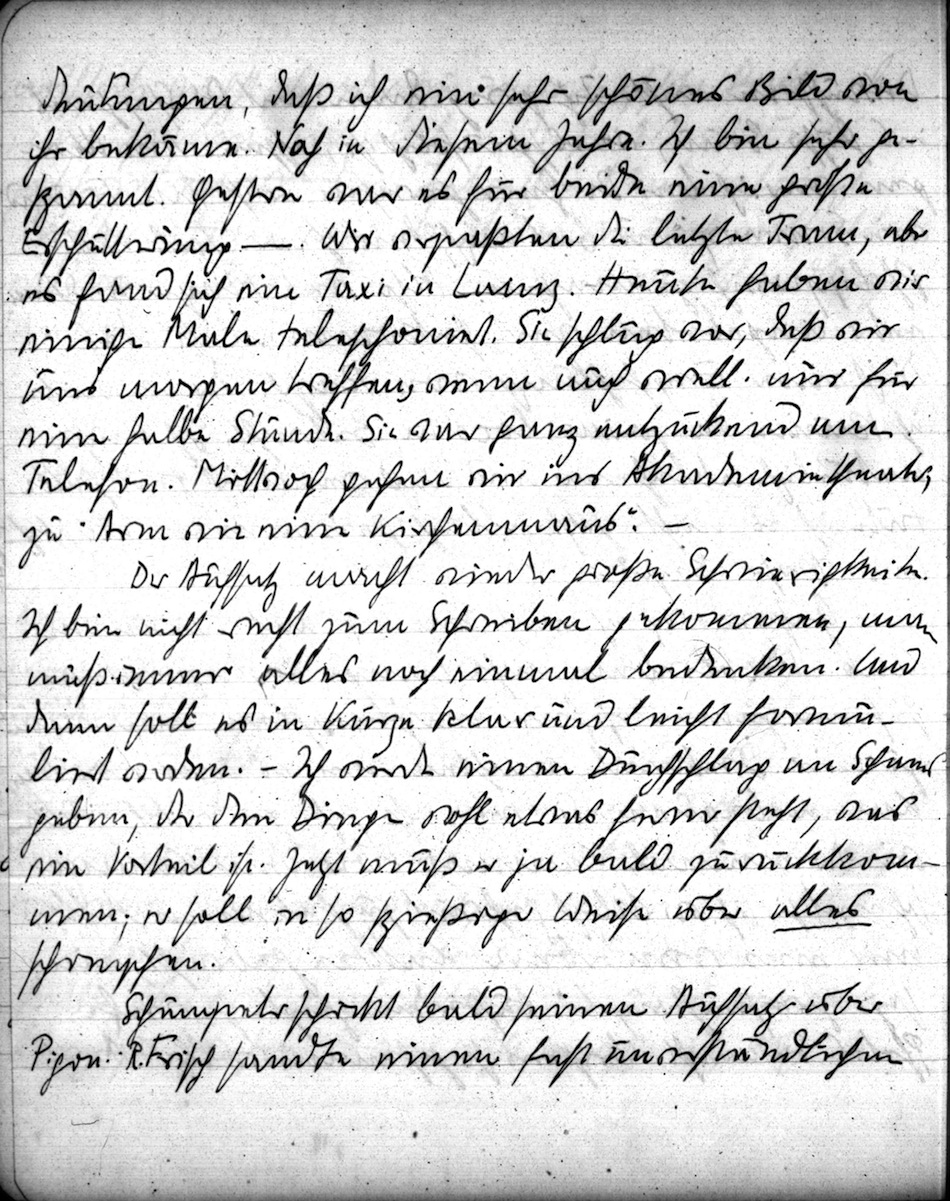 deutungen, daß ich ein sehr schönes Bild von
ihr bekäme. Noch in diesem Jahre. Ich bin sehr ge-
spannt. Gestern war es für beide eine große
Erschütterung —. Wir verpaßten die letzte Tram, aber
es fand sich ein Taxi in Lainz. Heute haben wir
einige Male telephoniert. Sie schlug vor, daß wir
uns morgen treffen, wenn auch evtl. nur für
eine halbe Stunde. Sie war ganz entzückend am
Telefon. Mittwoch gehen wir ins Akademietheater,
zu "Arm wie eine Kirchenmaus". —
Der Aufsatz macht wieder große Schwierigkeiten.
Ich bin nicht recht zum Schreiben gekommen, man
muß immer alles noch einmal bedenken. Und
dann soll es in Kürze klar und leicht formu-
liert werden. – Ich werde einen Durchschlag an Schams
geben, der dem Dinge wohl etwas ferner steht, was
ein Vorteil ist. Jetzt muß er ja bald zurückkom-
men; er soll in so spießiger Weise über alles
schimpfen.
Schumpeter schickt bald seinen Aufsatz über
Pigou. R. Frisch sandte einen fast unverständlichen